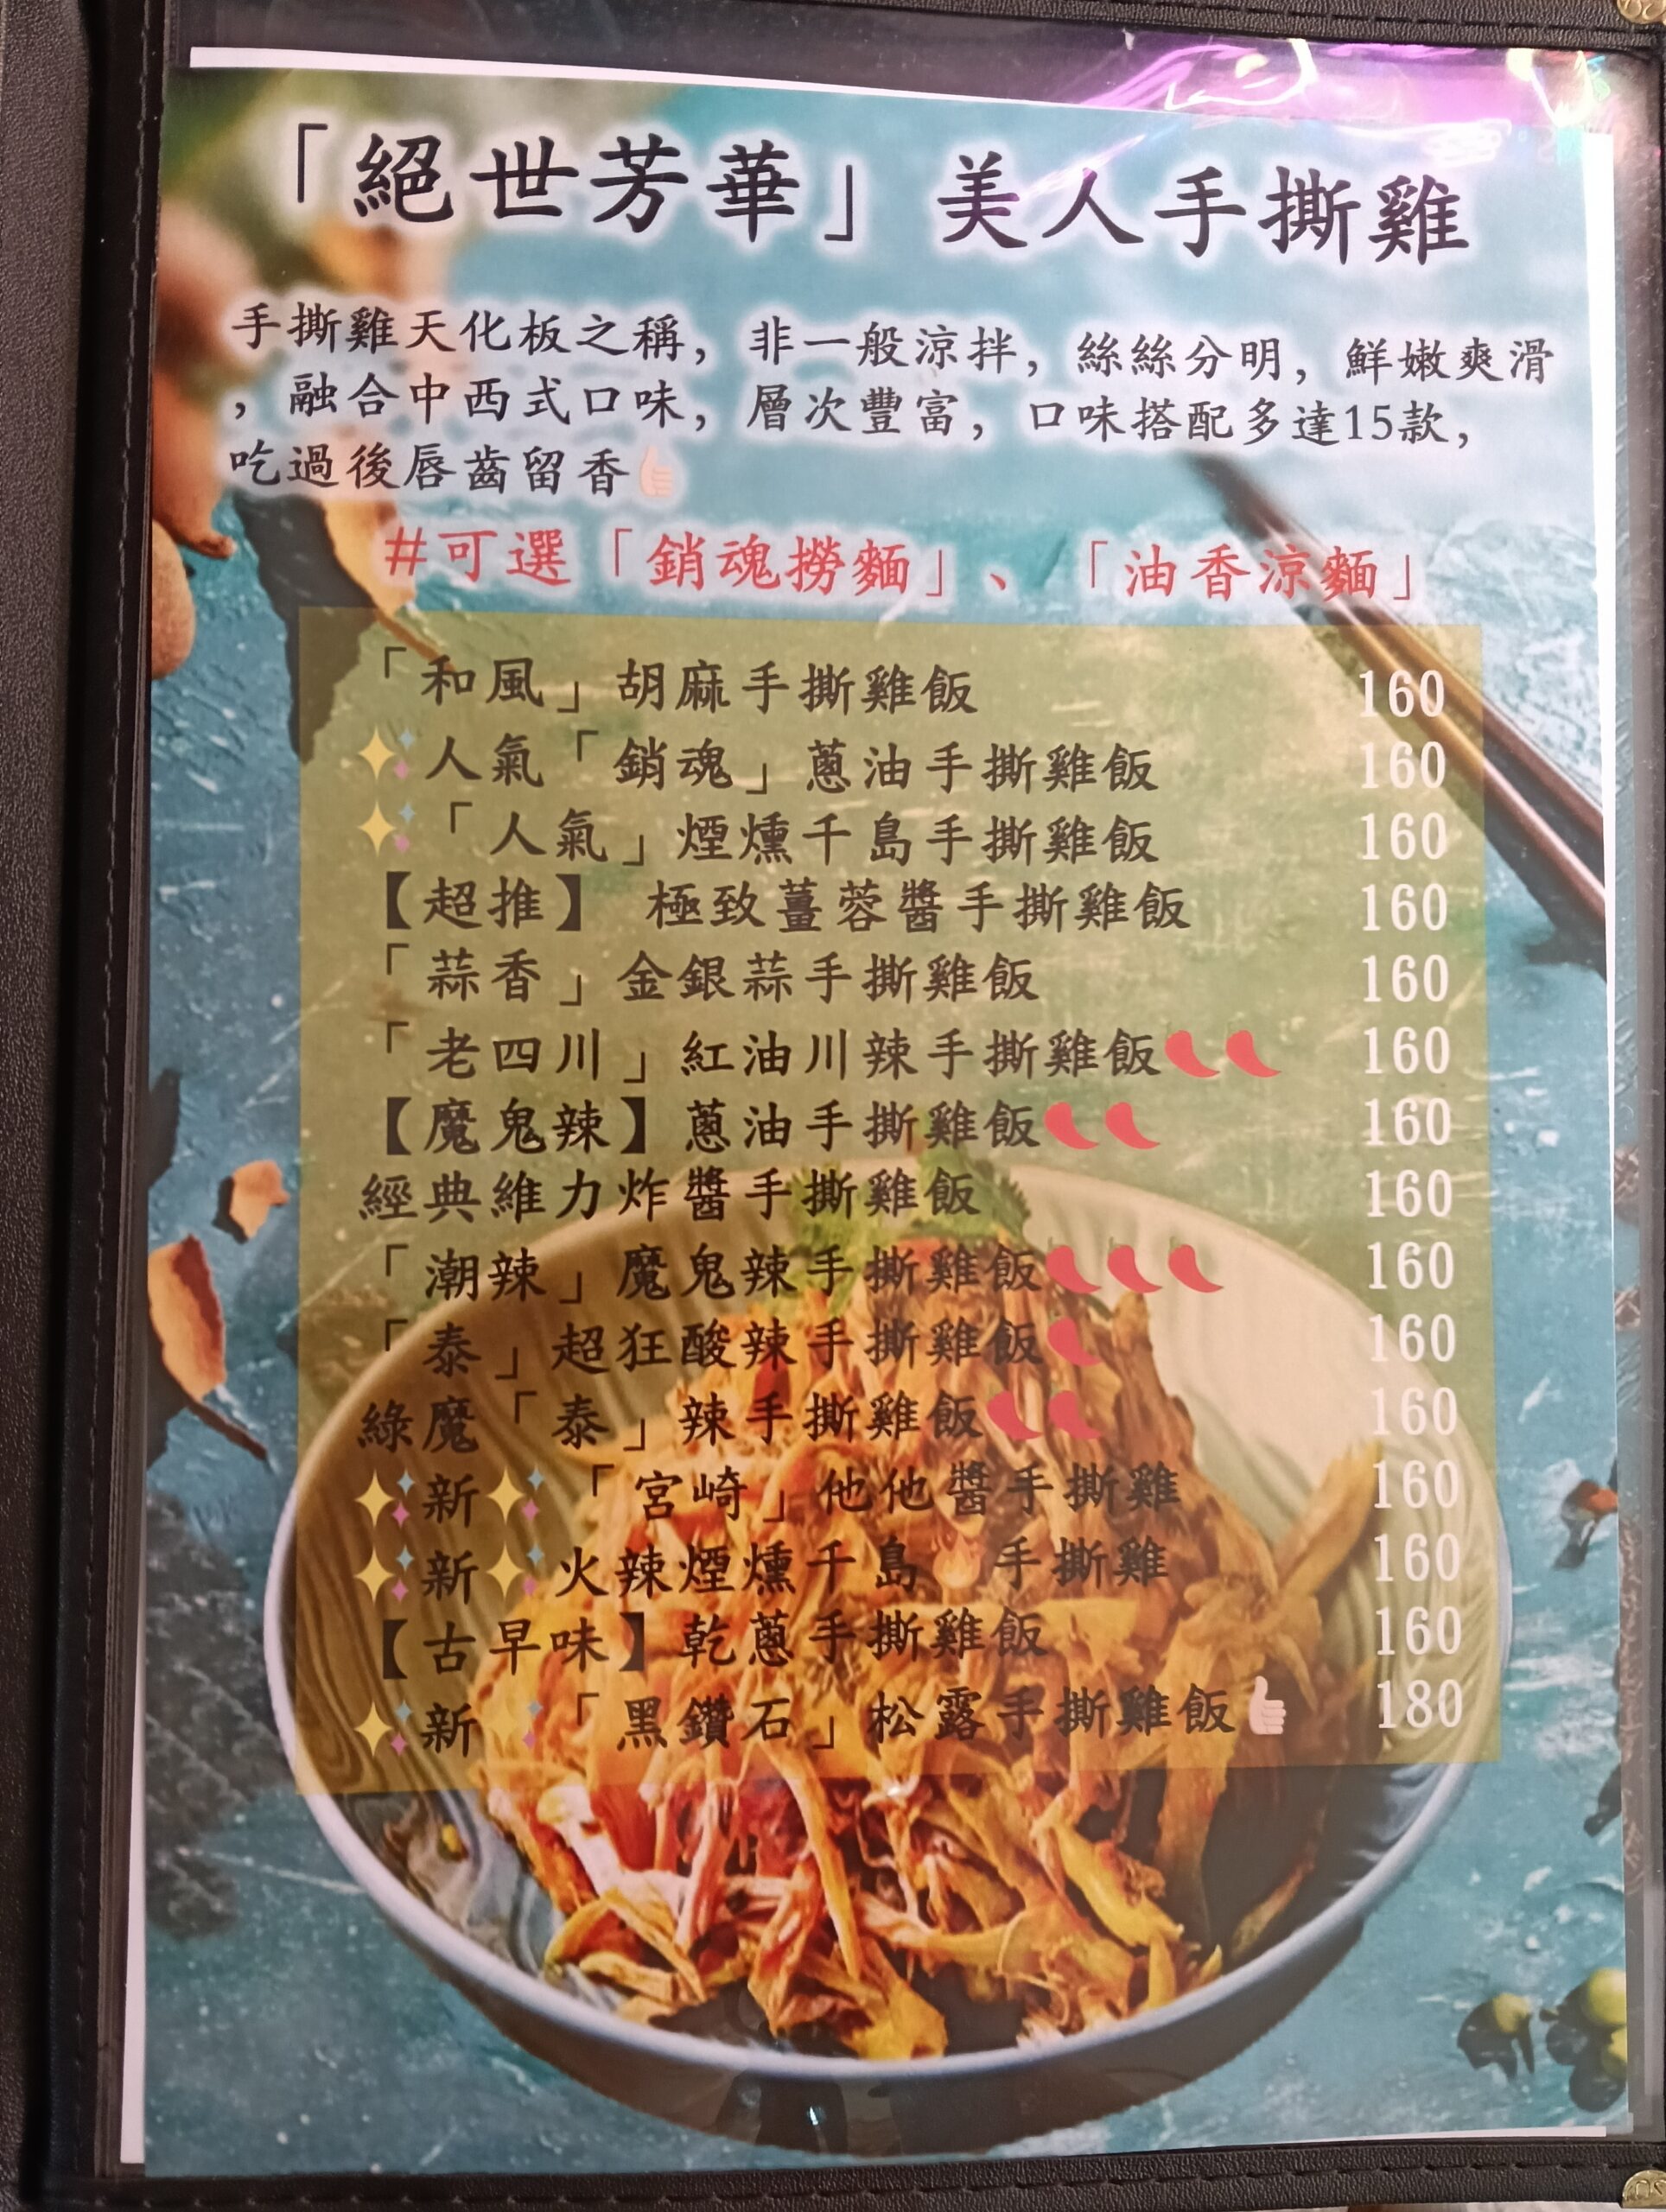 「絕世芳華」美人手撕雞
手撕雞天化板之稱，非一般涼拌，絲絲分明，鮮嫩爽滑
，融合中西式口味，層次豐富，口味搭配多達15款，
吃過後唇齒留香👍🏻
#可選「銷魂撈麵」、「油香涼麵」
「和風」胡麻手撕雞飯 160
✨人氣「銷魂」蔥油手撕雞飯 160
✨「人氣」煙燻千島手撕雞飯 160
【超推】 極致薑蓉醬手撕雞飯 160
「蒜香」金銀蒜手撕雞飯 160
「老四川」紅油川辣手撕雞飯🌶🌶 160
【魔鬼辣】蔥油手撕雞飯🌶🌶 160
經典維力炸醬手撕雞飯 160
「潮辣」魔鬼辣手撕雞飯🌶🌶🌶 160
「泰」超狂酸辣手撕雞飯🌶 160
綠魔「泰」辣手撕雞飯🌶🌶 160
✨新✨「宮崎」他他醬手撕雞 160
✨新✨火辣煙燻千島🔥手撕雞 160
【古早味】乾蔥手撕雞飯 160
✨新✨「黑鑽石」松露手撕雞飯👍🏻 180